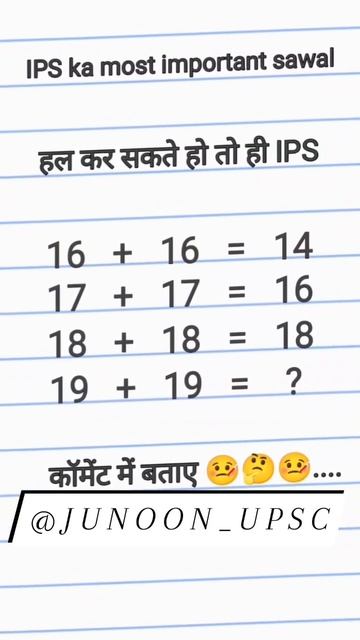 IPS ka most important sawal
हल कर सकते हो तो ही IPS
16 + 16 = 14
17 + 17 = 16
18 + 18 = 18
19 + 19 = ?
कॉमेंट में बताए 🤒🤔🤒....
@JUNOON_UPSC